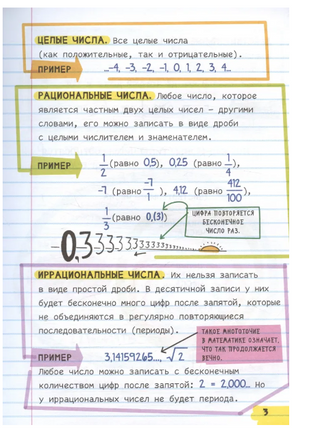 ЦЕЛЫЕ ЧИСЛА. Все целые числа
(как положительные, так и отрицательные).
ПРИМЕР ...-4, -3, -2, -1, 0, 1, 2, 3, 4...
РАЦИОНАЛЬНЫЕ ЧИСЛА. Любое число, которое
является частным двух целых чисел – другими
словами, его можно записать в виде дроби
с целыми числителем и знаменателем.
ПРИМЕР 1/2 (равно 0,5), 0,25 (равно 1/4),
-7 (равно -7/1), 4,12 (равно 412/100),
1/3 (равно 0,(3))
ЦИФРА ПОВТОРЯЕТСЯ
БЕСКОНЕЧНОЕ
ЧИСЛО РАЗ.
ИРРАЦИОНАЛЬНЫЕ ЧИСЛА. Их нельзя записать
в виде простой дроби. В десятичной записи у них
будет бесконечно много цифр после запятой, которые
не объединяются в регулярно повторяющиеся
последовательности (периоды).
ТАКОЕ МНОГОТОЧИЕ
В МАТЕМАТИКЕ ОЗНАЧАЕТ,
ЧТО ТАК ПРОДОЛЖАЕТСЯ
ВЕЧНО.
ПРИМЕР 3,14159265..., √2
Любое число можно записать с бесконечным
количеством цифр после запятой: 2 = 2,000... Но
у иррациональных чисел не будет периода.
3